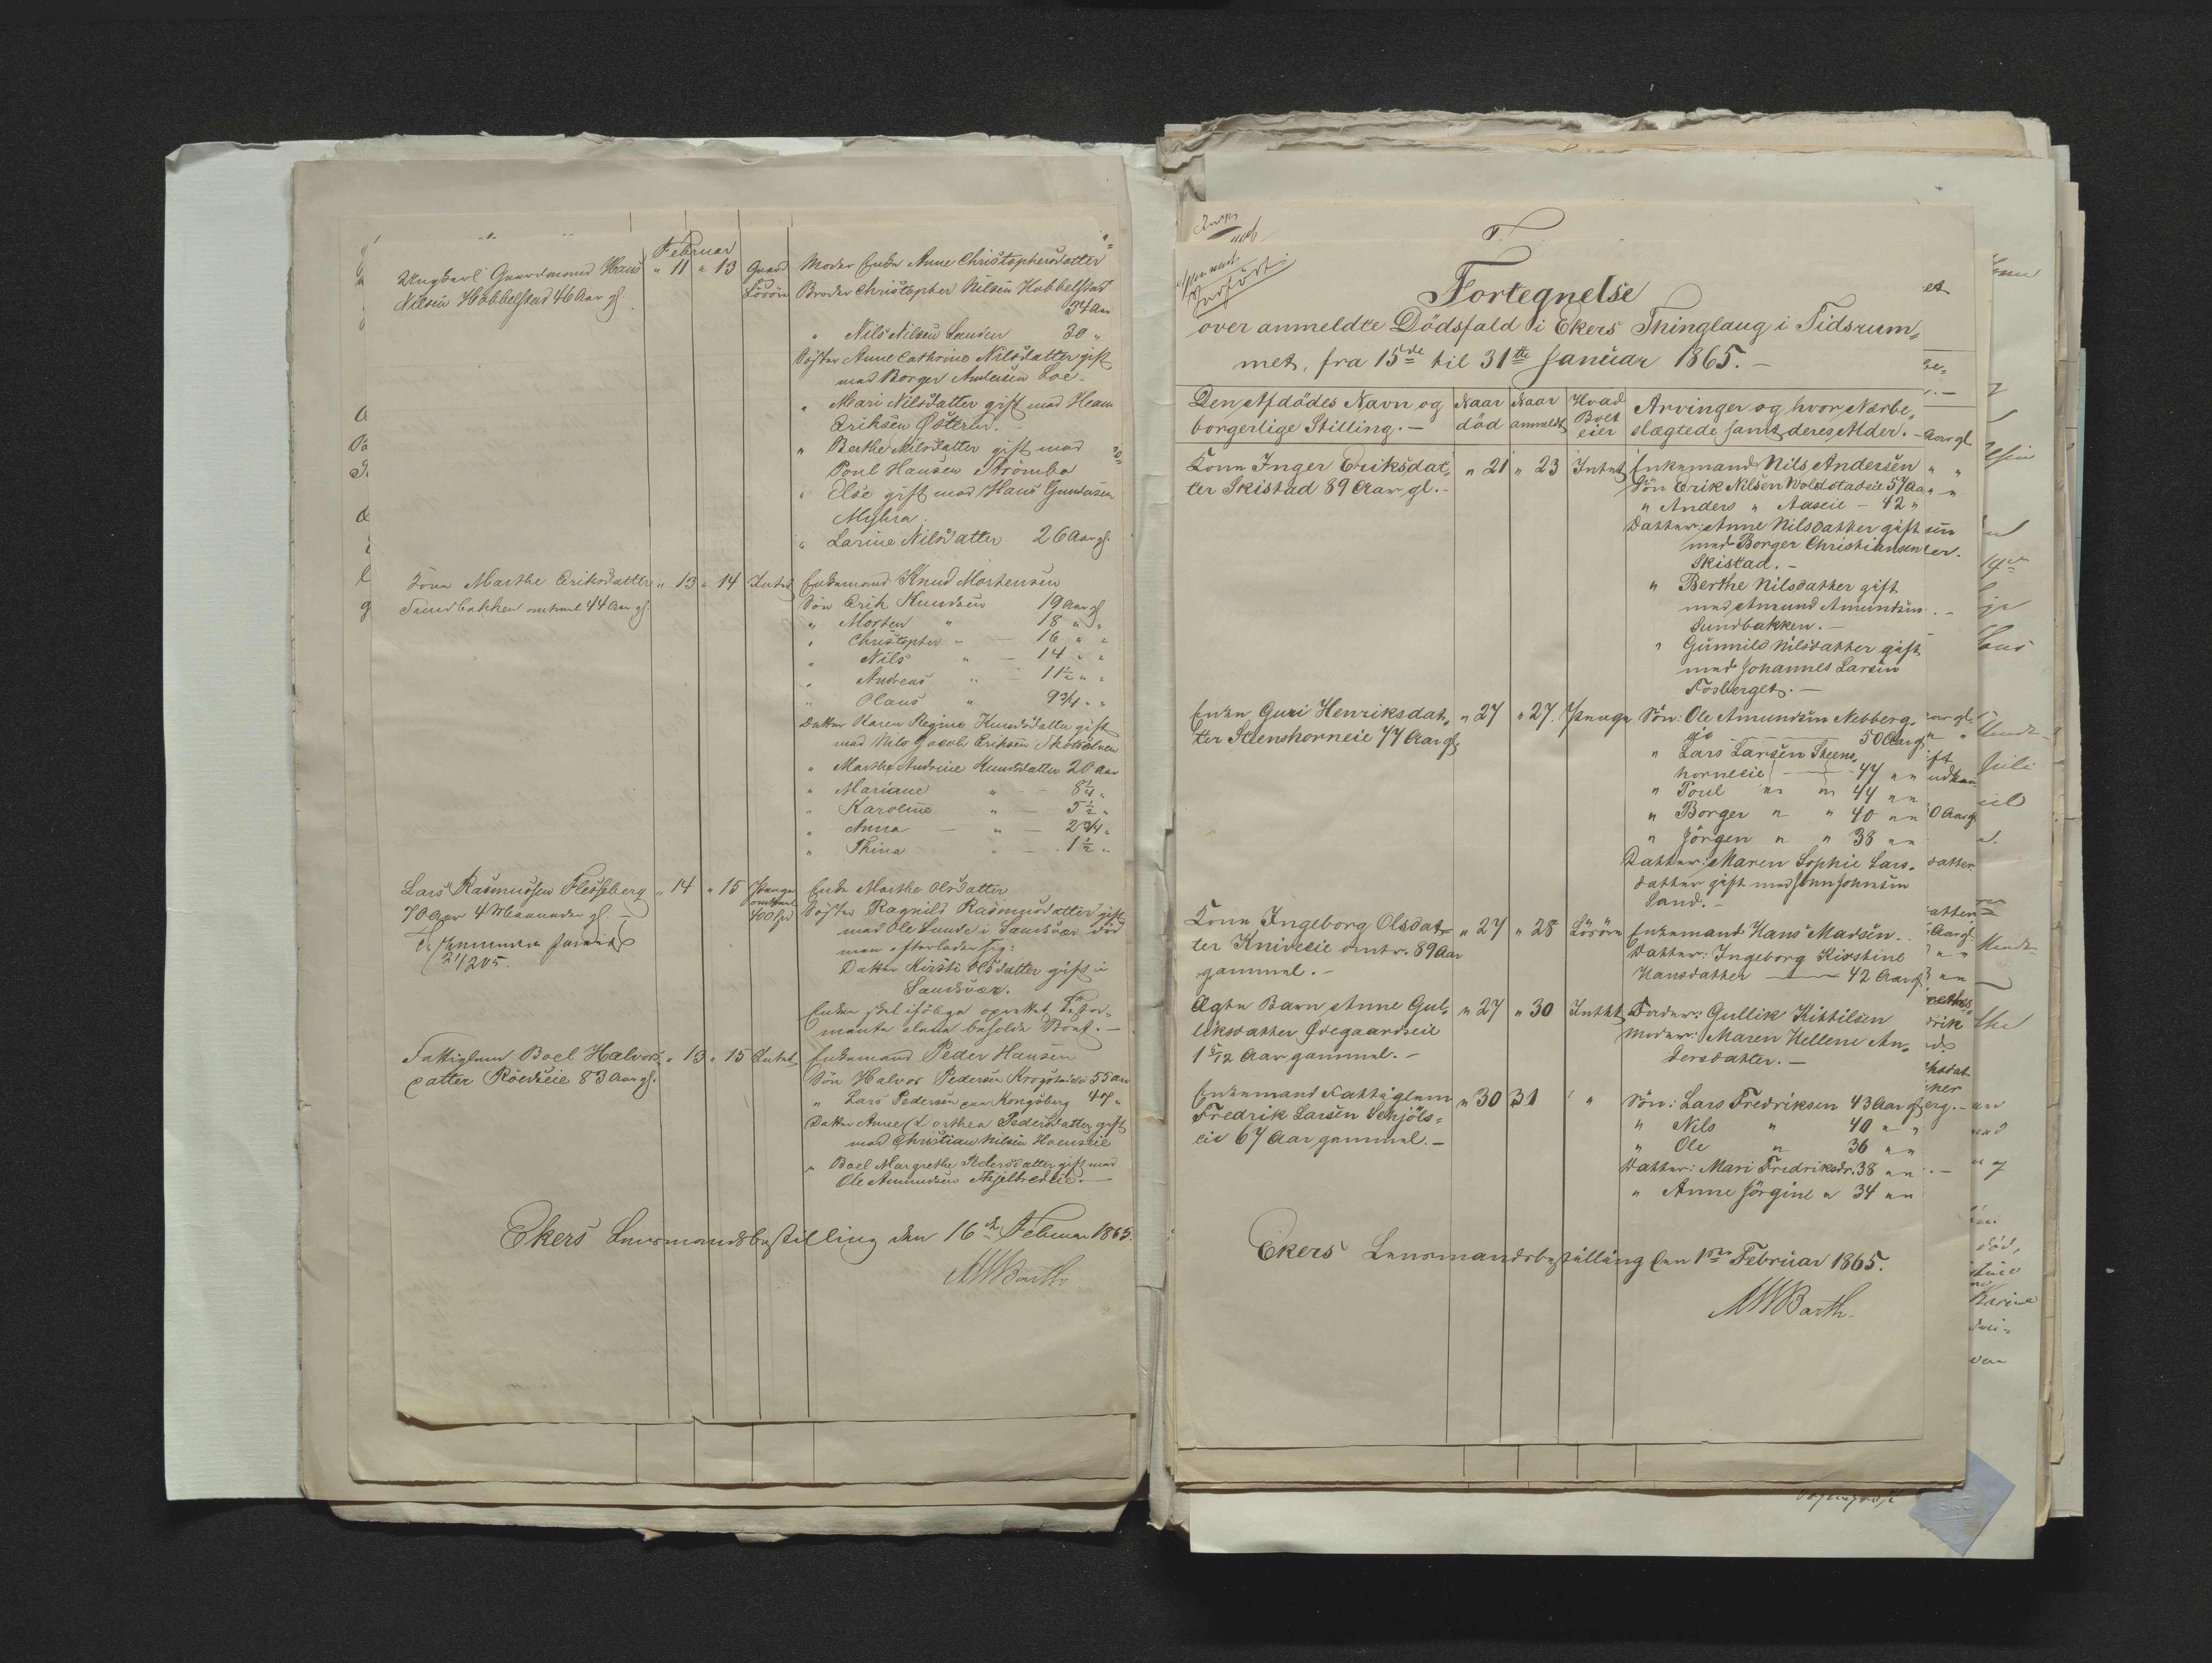 Februar
Ungkarl Gaardmand Hans " 11 " 13 Gaard Moder Enke Anne Christophersdatter
Nilsen Hobbelstad 46 Aar gl. Løsøre Broder Christopher Nilsen Hobbelstad
34 Aar
" Nils Nilsen Sanden 30 "
Søster Anne Cathrine Nilsdatter gift
med Borger Andersen Loe
" Mari Nilsdatter gift med Hans
Eriksen Østern.
" Berthe Nilsdatter gift med
Poul Hansen Strømbo
" Else gift med Hans Gundersen
Myhra.
" Larine Nilsdatter 26 Aar gl.
Kone Marthe Eriksdatter " 13 " 14 Intet Enkemand Knud Mortensen
Sundbakken omtrent 44 Aar gl. Søn Erik Knudsen 19 Aar gl
" Morten " 18 " "
" Christopher " — 16 " "
" Nils " — 14 " "
" Andreas " — 11½ " "
" Olaus " 9¾ " "
Datter Karen Regine Knudsdatter gift
med Nils Jacob Eriksen
" Marthe Andrine Knudsdatter 20 Aar
" Mariane " — 8¼ "
" Karoline " — 5½ "
" Anna — " — 2¾ "
" Thina " — 1½ "
Lars Rasmussen Flesseberg " 14 " 15 Penge Enke Marthe Olsdatter
70 Aar 4 Maaneder gl. — omtrent Søster Ragnild Rasmusdatter gift
400 Spd med Ole Lunde i Sandsvær død
21/2 65. men efterlader sig:
Datter Kirsti Olsdatter gift i
Sandsvær.
Enken skal ifølge oprettet Testa-
mente alene beholde Boet. —
Fattiglem Boel Halvors- " 13 " 15 Intet Enkemand Peder Hansen
datter Röedseie 83 Aar gl. Søn Halvor Pedersen Krogstadeie 55 Aar
" Lars Pedersen paa Kongsberg 47 "
Datter Anne Dorthea Pedersdatter gift
med Christian Nilsen Hoenseie
" Boel Margrethe Pedersdatter gift med
Ole Amundsen —
Ekers Lensmandsbestilling den 16de Februar 1865.
MWBarth
Fortegnelse
over anmeldte Dödsfald i Ekers Thinglaug i Tidsrum-
met, fra 15de til 31te Januar 1865. —
Den Afdödes Navn og borgerlige Stilling. —
Naar död
Naar anmeldt
Hvad Boet eier
Arvinger og hvor Nærbe-
slægtede samt deres Alder. —
Kone Inger Eriksdat- " 21 " 23 Intet Enkemand Nils Andersen
ter Skistad 89 Aar gl. — Sön Erik Nilsen Woldstadeie 57 Aar
" Anders " Aaseie — 42 "
Datter: Anne Nilsdatter gift
med Borger Christiansen
Skistad. —
" Berthe Nilsdatter gift
med Amund Amundsen
Sundbakken. —
" Gunnild Nilsdatter gift
med Johannes Larsen
Fosberget. —
Enken Guri Henriksdat- " 27 " 27. Penge Sön: Ole Amundsen Nebberg-
ter Steenshorneie 77 Aar gl. eie — 50 Aar gl.
" Lars Larsen Steens-
horneeie — 47 " "
" Poul " " 44 " "
" Borger " " 40 " "
" Jörgen " " 38 " "
Datter: Maren Sophie Lars-
datter gift med Jens Johnsen
Sand. —
Kone Ingeborg Olsdat- " 27 " 28 Lösöre Enkemand Hans Madsen.
ter Kniveeie omtr. 89 Aar Datter: Ingeborg Kirstine
gammel. — Hansdatter — 42 Aar gl.
Ægte Barn Anne Gul- " 27 " 30 Intet Fader: Gullik Kittilsen
liksdatter Ödegaardseie Moder: Maren Hellene An-
1 5/12 Aar gammel. — dersdatter. —
Enkemand Fattiglem " 30 31 " Sön: Lars Fredriksen 43 Aar gl
Fredrik Larsen Schjöls- " Nils " 40 " "
eie 67 Aar gammel. — " Ole " 36 " "
Datter: Mari Fredriksdr. 38 " "
" Anne Jörgine " 34 " "
Ekers Lensmandsbestilling den 1ste Februar 1865.
MWBarth